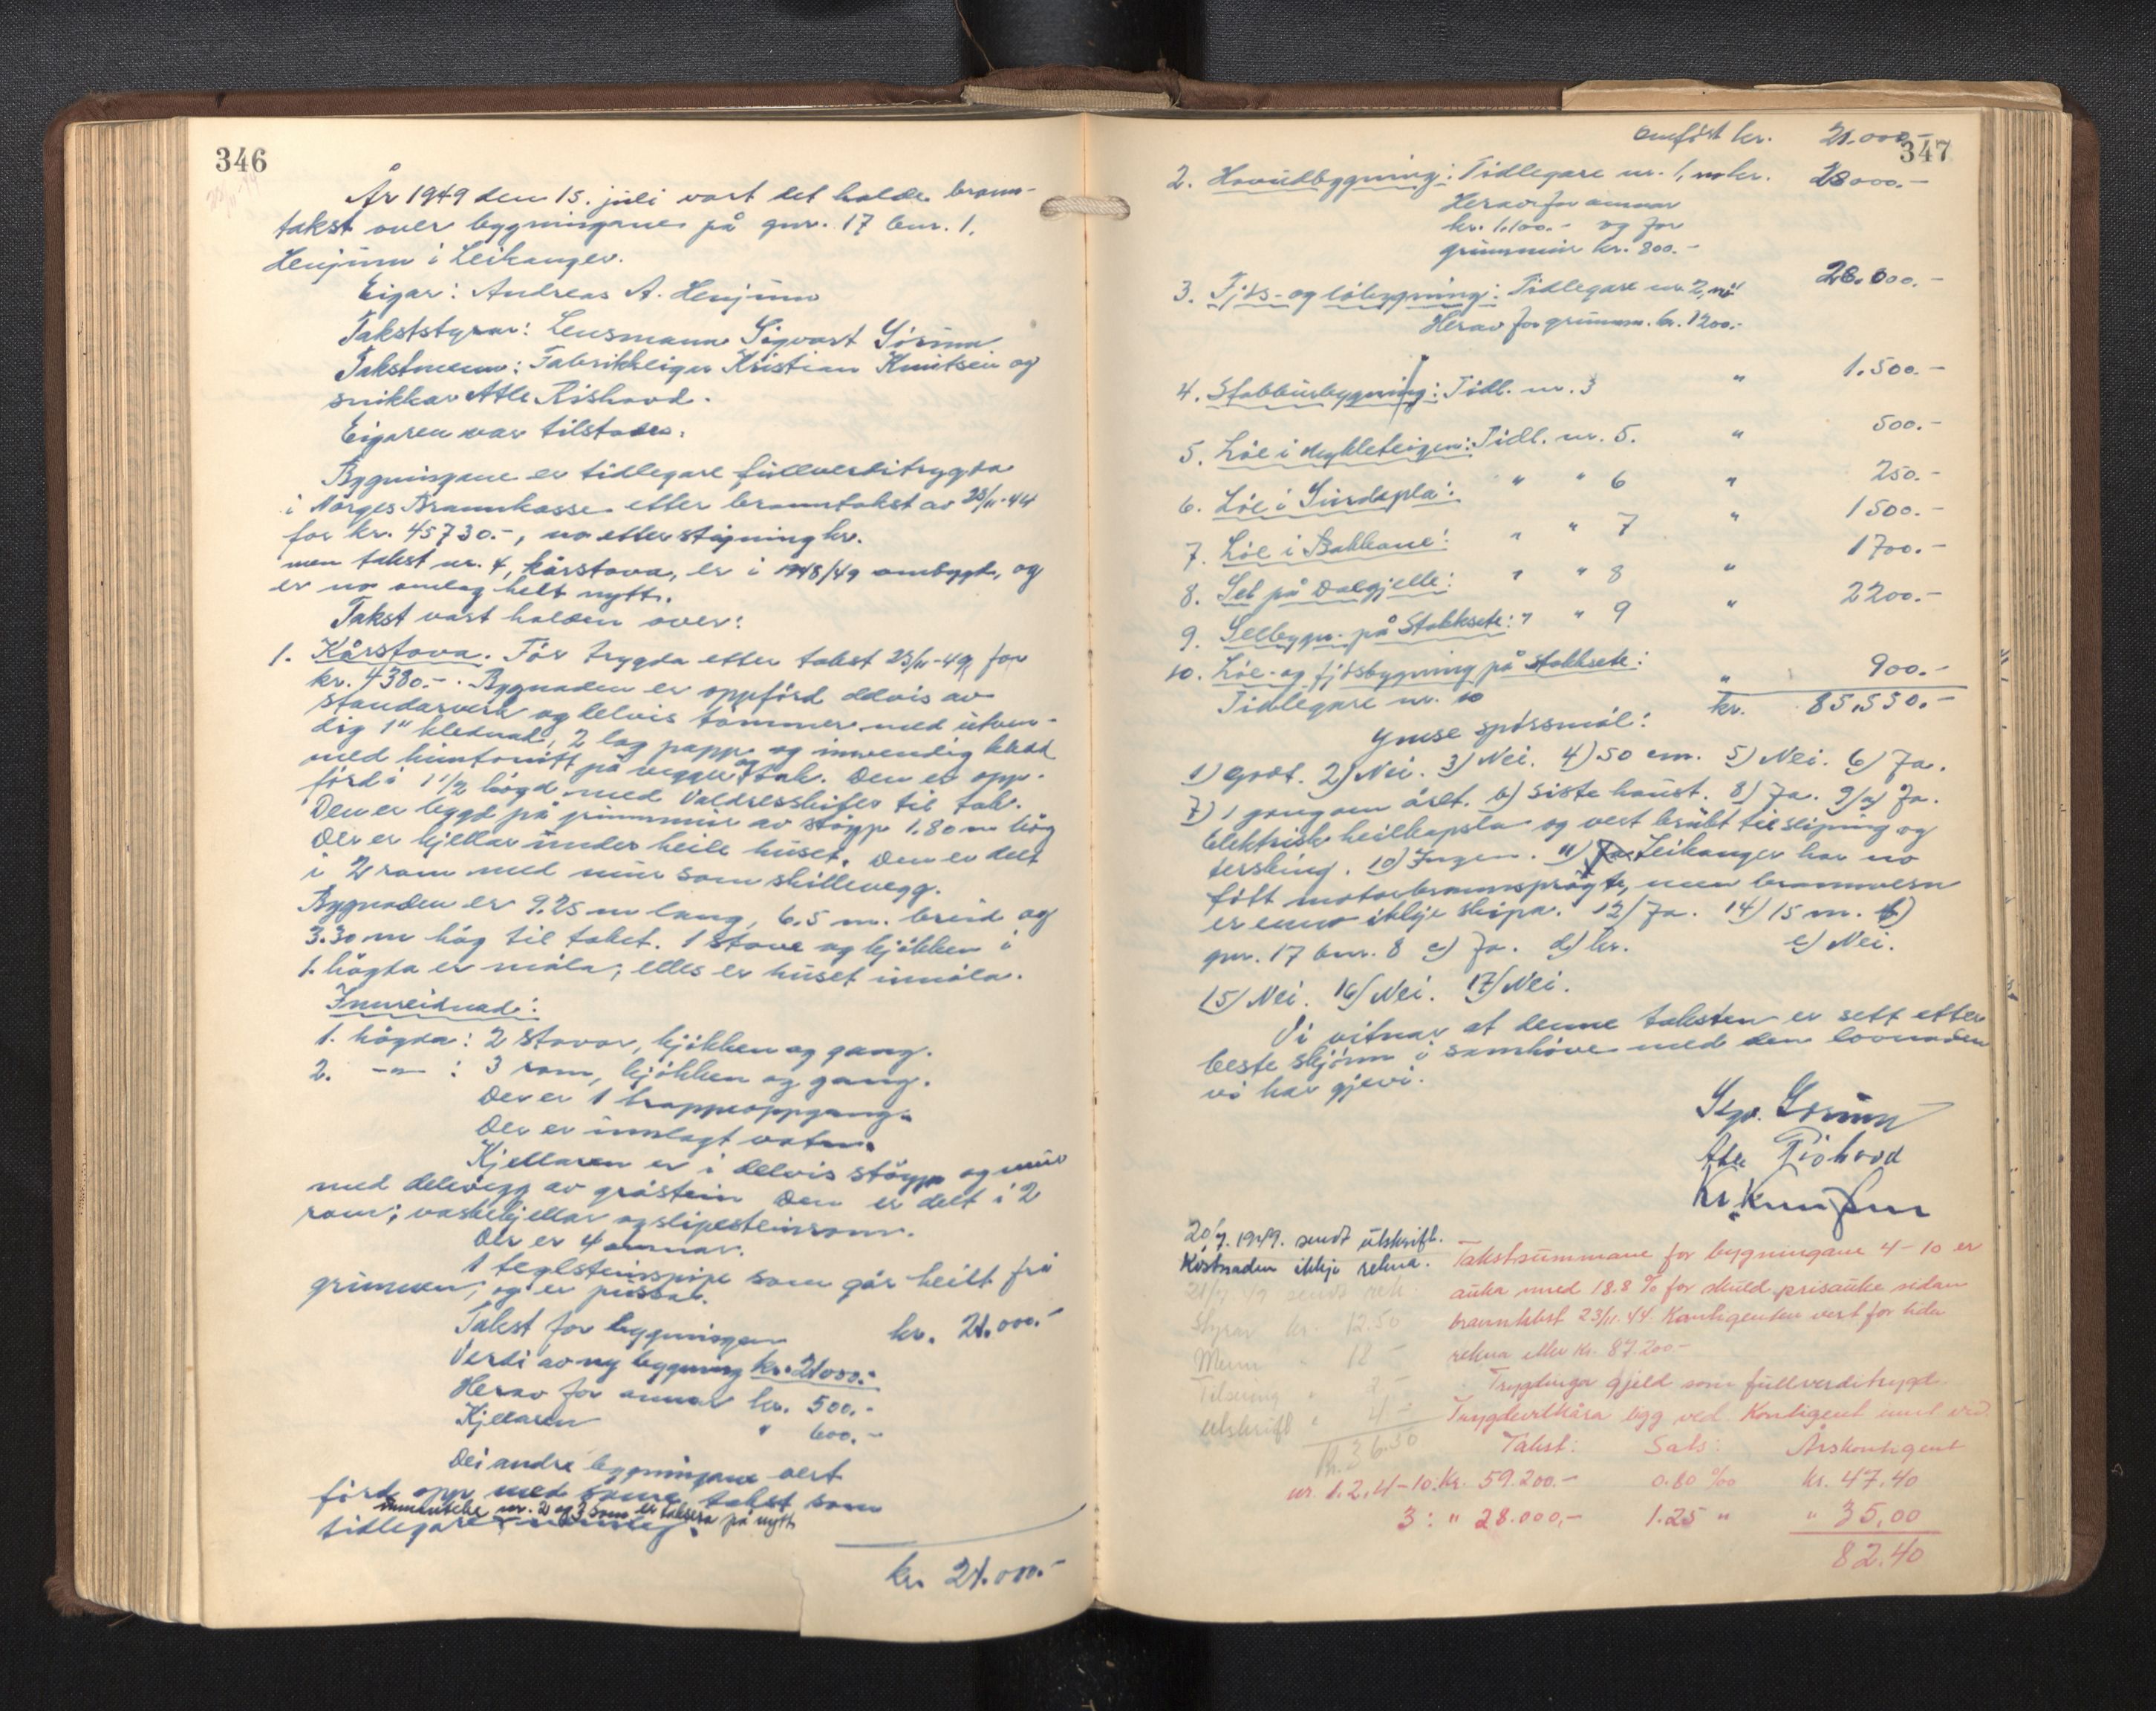 346
År 1949 den 15. juli vart det halde brann-
takst over bygningane på gnr. 17 bnr. 1.
Henjum i Leikanger.
Eigar: Andreas A. Henjum
Takststyrar: Lensmann Sigvart Gorum
Takstmenn: Fabrikkeigar Kristian Knutsen og
snikkar Atle Rishovd.
Eigaren var tilstades.
Bygningane er tidlegare fullverditrygda
i Norges Brannkasse etter branntakst av 23/11-44
for kr. 45730.-, no etter stigning kr.
men takst nr. 4, kårstova, er i 1948/49 ombygt, og
er no omlag heilt nytt.
Takst vart halden over:
1. Kårstova. Før trygda etter takst 23/11-44 for
kr. 4380.-. Bygnaden er oppførd delvis av
standarverk og delvis tømmer med utven-
dig 1" klednad, 2 lag papp og innvendig kledd
med huntonitt på vegger og tak. Den er opp-
førd i 1 1/2 høgd med Valdresskifer til tak.
Den er bygd på grunnmur av støyp 1.80 m høg
Der er kjellar under heile huset. Den er delt
i 2 rom med mur som skillevegg.
Bygnaden er 9.25 m lang, 6.5 m. breid og
3.30 m høg til taket. 1 stove og kjøkken i
1. høgda er måla, elles er huset umåla.
Innreidnad:
1. høgda: 2 stovor, kjøkken og gang.
2. -"- : 3 rom, kjøkken og gang.
Der er 1 trappeoppgang.
Der er innlagt vatn.
Kjellaren er i delvis støyp og mur
med delevegg av gråstein Den er delt i 2
rom; vaskekjellar og slipesteinsrom.
Der er 4 omnar.
1 teglsteinspipe som går heilt frå
grunnen, og er pussa.
Takst for bygningen kr. 21.000.-
Verdi av ny bygning kr. 21000.-
Herav for omnar kr. 500.-
Kjellaren " 600.-
Dei andre bygningane vert
førde opp med same takst som
unnateke nr. 2 og 3 som er taksera på nytt
tidlegare
kr. 21.000.-
347
Omført kr. 21.000.-
2. Hovudbygning: Tidlegare nr. 1, no kr. 28000.-
Herav for omnar
kr. 1.100.- og for
grunnmur kr. 800.-
3. Fjøs- og løbygning: Tidlegare nr. 2, no " 28.000.-
Herav for grunnm. kr. 1200.-
4. Stabbursbygning: Tidl. nr. 3 " 1.500.-
5. Løe i Mykleteigen: Tidl. nr. 5. " 500.-
6. Løe i : " " 6 " 250.-
7. Løe i Bakkane: " " 7 " 1500.-
8. Sel på Dalgjelle: " " 8 " 1700.-
9. Selbygn. på Stokksete: " " 9 " 2200.-
10. Løe- og fjøsbygning på Stokksete:
Tidlegare nr. 10 " 900.-
kr. 85.550.-
Ymse spørsmål:
1) Godt. 2) Nei. 3) Nei. 4) 50 cm. 5) Nei. 6) Ja.
7) 1 gong om året. b) Siste haust. 8) Ja. 9/a) Ja.
Elektrisk heilkapsla og vert brukt til sliping og
tersking. 10) Ingen. 11) Leikanger har no
fått motorbrannsprøyte, men brannvern
er enno ikkje skipa. 12) Ja. 14) 15 m. b)
gnr. 17 bnr. 8 c) Ja. d) kr. e) Nei.
15) Nei. 16) Nei. 17) Nei.
Vi vitnar at denne taksten er sett etter
beste skjønn i samhøve med den lovnaden
vi har gjevi.
Sigv. Gorum
Atle Rishovd
Kr. Knutsen
20/7. 1949. sendt utskrift.
Kostnaden ikkje rekna.
sendt rek.
Styrar kr. 12.50
Menn " 18 -
" 2 -
Utskrift " 4 -
Kr. 36.50
Takstsummane for bygningane 4-10 er
auka med 18.8 % for skuld prisauke sidan
branntakst 23/11.44. Kontigenten vert for tida
rekna etter kr. 87.200-
Trygdinga gjeld som fullverditrygd.
Trygdevilkåra ligg ved. Kontigent
Takst: Sats: Årskontigent
nr. 1.2.4-10: Kr. 59.200.- 0.80 ‰ kr. 47.40
3: " 28.000,- 1.25 " " 35,00
82.40